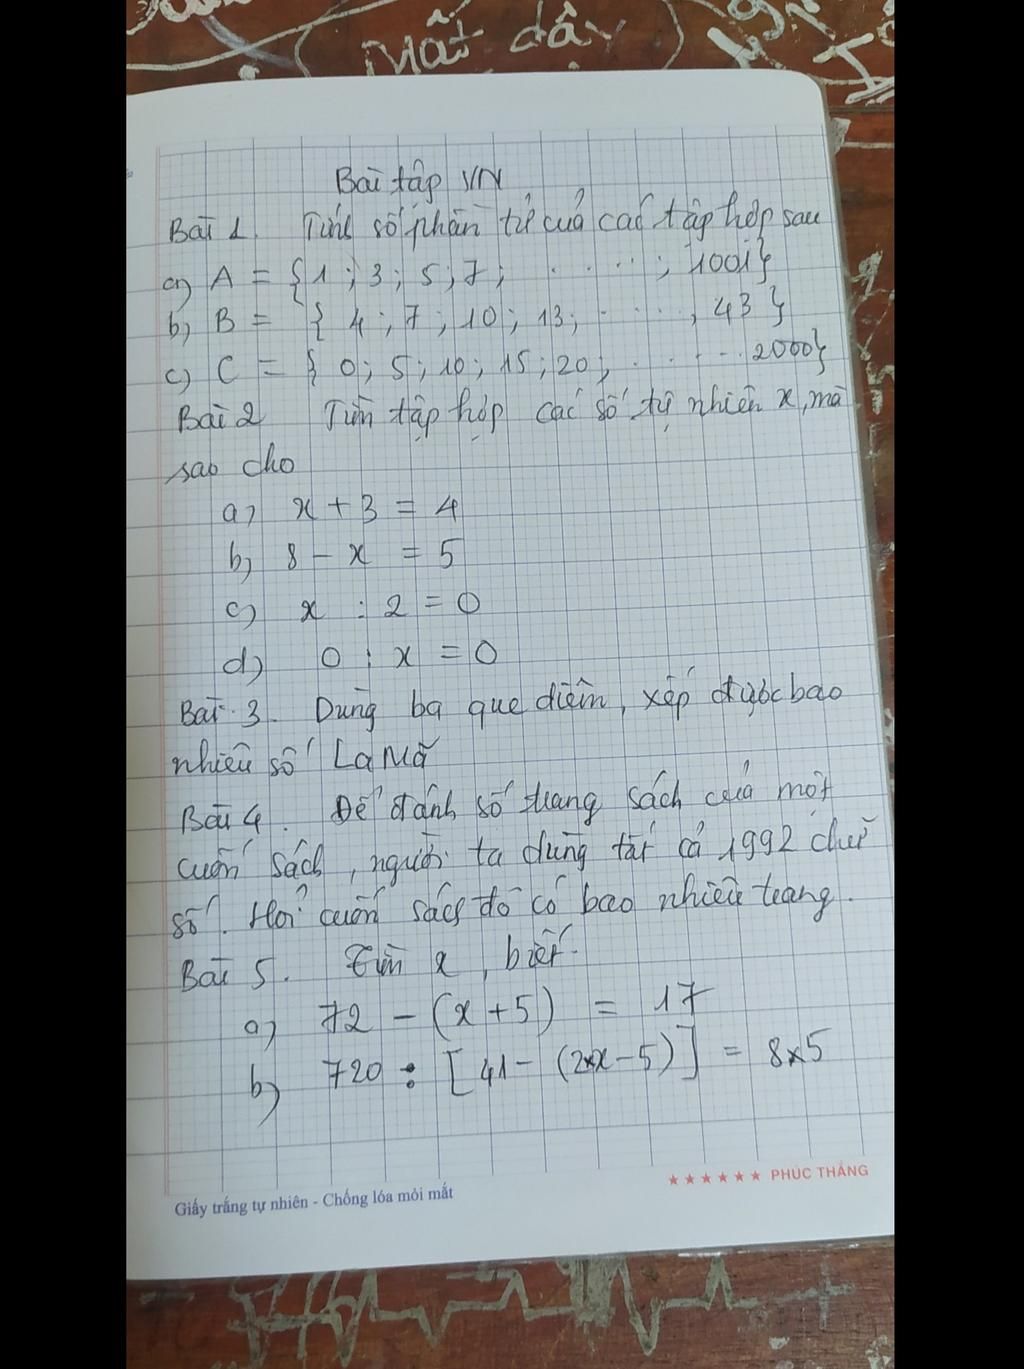 Mất dấy
Bài tập VN
Bài 1. Tính số phần tử của các tập hợp sau
a) A = {1 ; 3 ; 5 ; 7 ; . . . . . ; 1001}
b) B = { 4 ; 7 ; 10 ; 13 ; . . . . , 43 }
c) C = { 0 ; 5 ; 10 ; 15 ; 20 , . . . . . 2000}
Bài 2 Tìm tập hợp các số tự nhiên x, mà
sao cho
a) x + 3 = 4
b) 8 - x = 5
c) x : 2 = 0
d) 0 : x = 0
Bài 3. Dùng ba que diêm, xếp được bao
nhiêu số La Mã
Bài 4. Để đánh số trang sách của một
cuốn sách, người ta dùng tất cả 1992 chữ
số. Hỏi cuốn sách đó có bao nhiêu trang.
Bài 5. Tìm x, biết.
a) 72 - (x + 5) = 17
b) 720 : [41 - (2x x - 5)] = 8 x 5
★★★★★★ PHÚC THẮNG
Giấy trắng tự nhiên - Chống lóa mỏi mắt